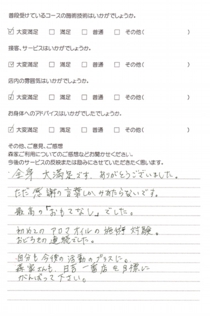 普段受けているコースの施術技術はいかがでしょうか。
☑ 大変満足 □ 満足 □ 普通 □ その他( )
接客、サービスはいかがでしょうか。
☑ 大変満足 □ 満足 □ 普通 □ その他( )
店内の雰囲気はいかがでしょうか。
☑ 大変満足 □ 満足 □ 普通 □ その他( )
お身体へのアドバイスはいかがでしたでしょうか。
☑ 大変満足 □ 満足 □ 普通 □ その他( )
その他、ご意見、ご感想
森家ご利用についてのご感想などお聞かせください。
今後のサービスの反映または励みにさせていただきたく思います。
全身 大満足です。ありがとうございました。
ただ 感謝の言葉しか みあたらないです。
最高の「おもてなし」でした。
初めてのアロマオイルの 体験。
おどろきの連続でした。
自分も今後の活動のプラスに。
森家さんも、日本一のお店を目標に
がんばって下さい。